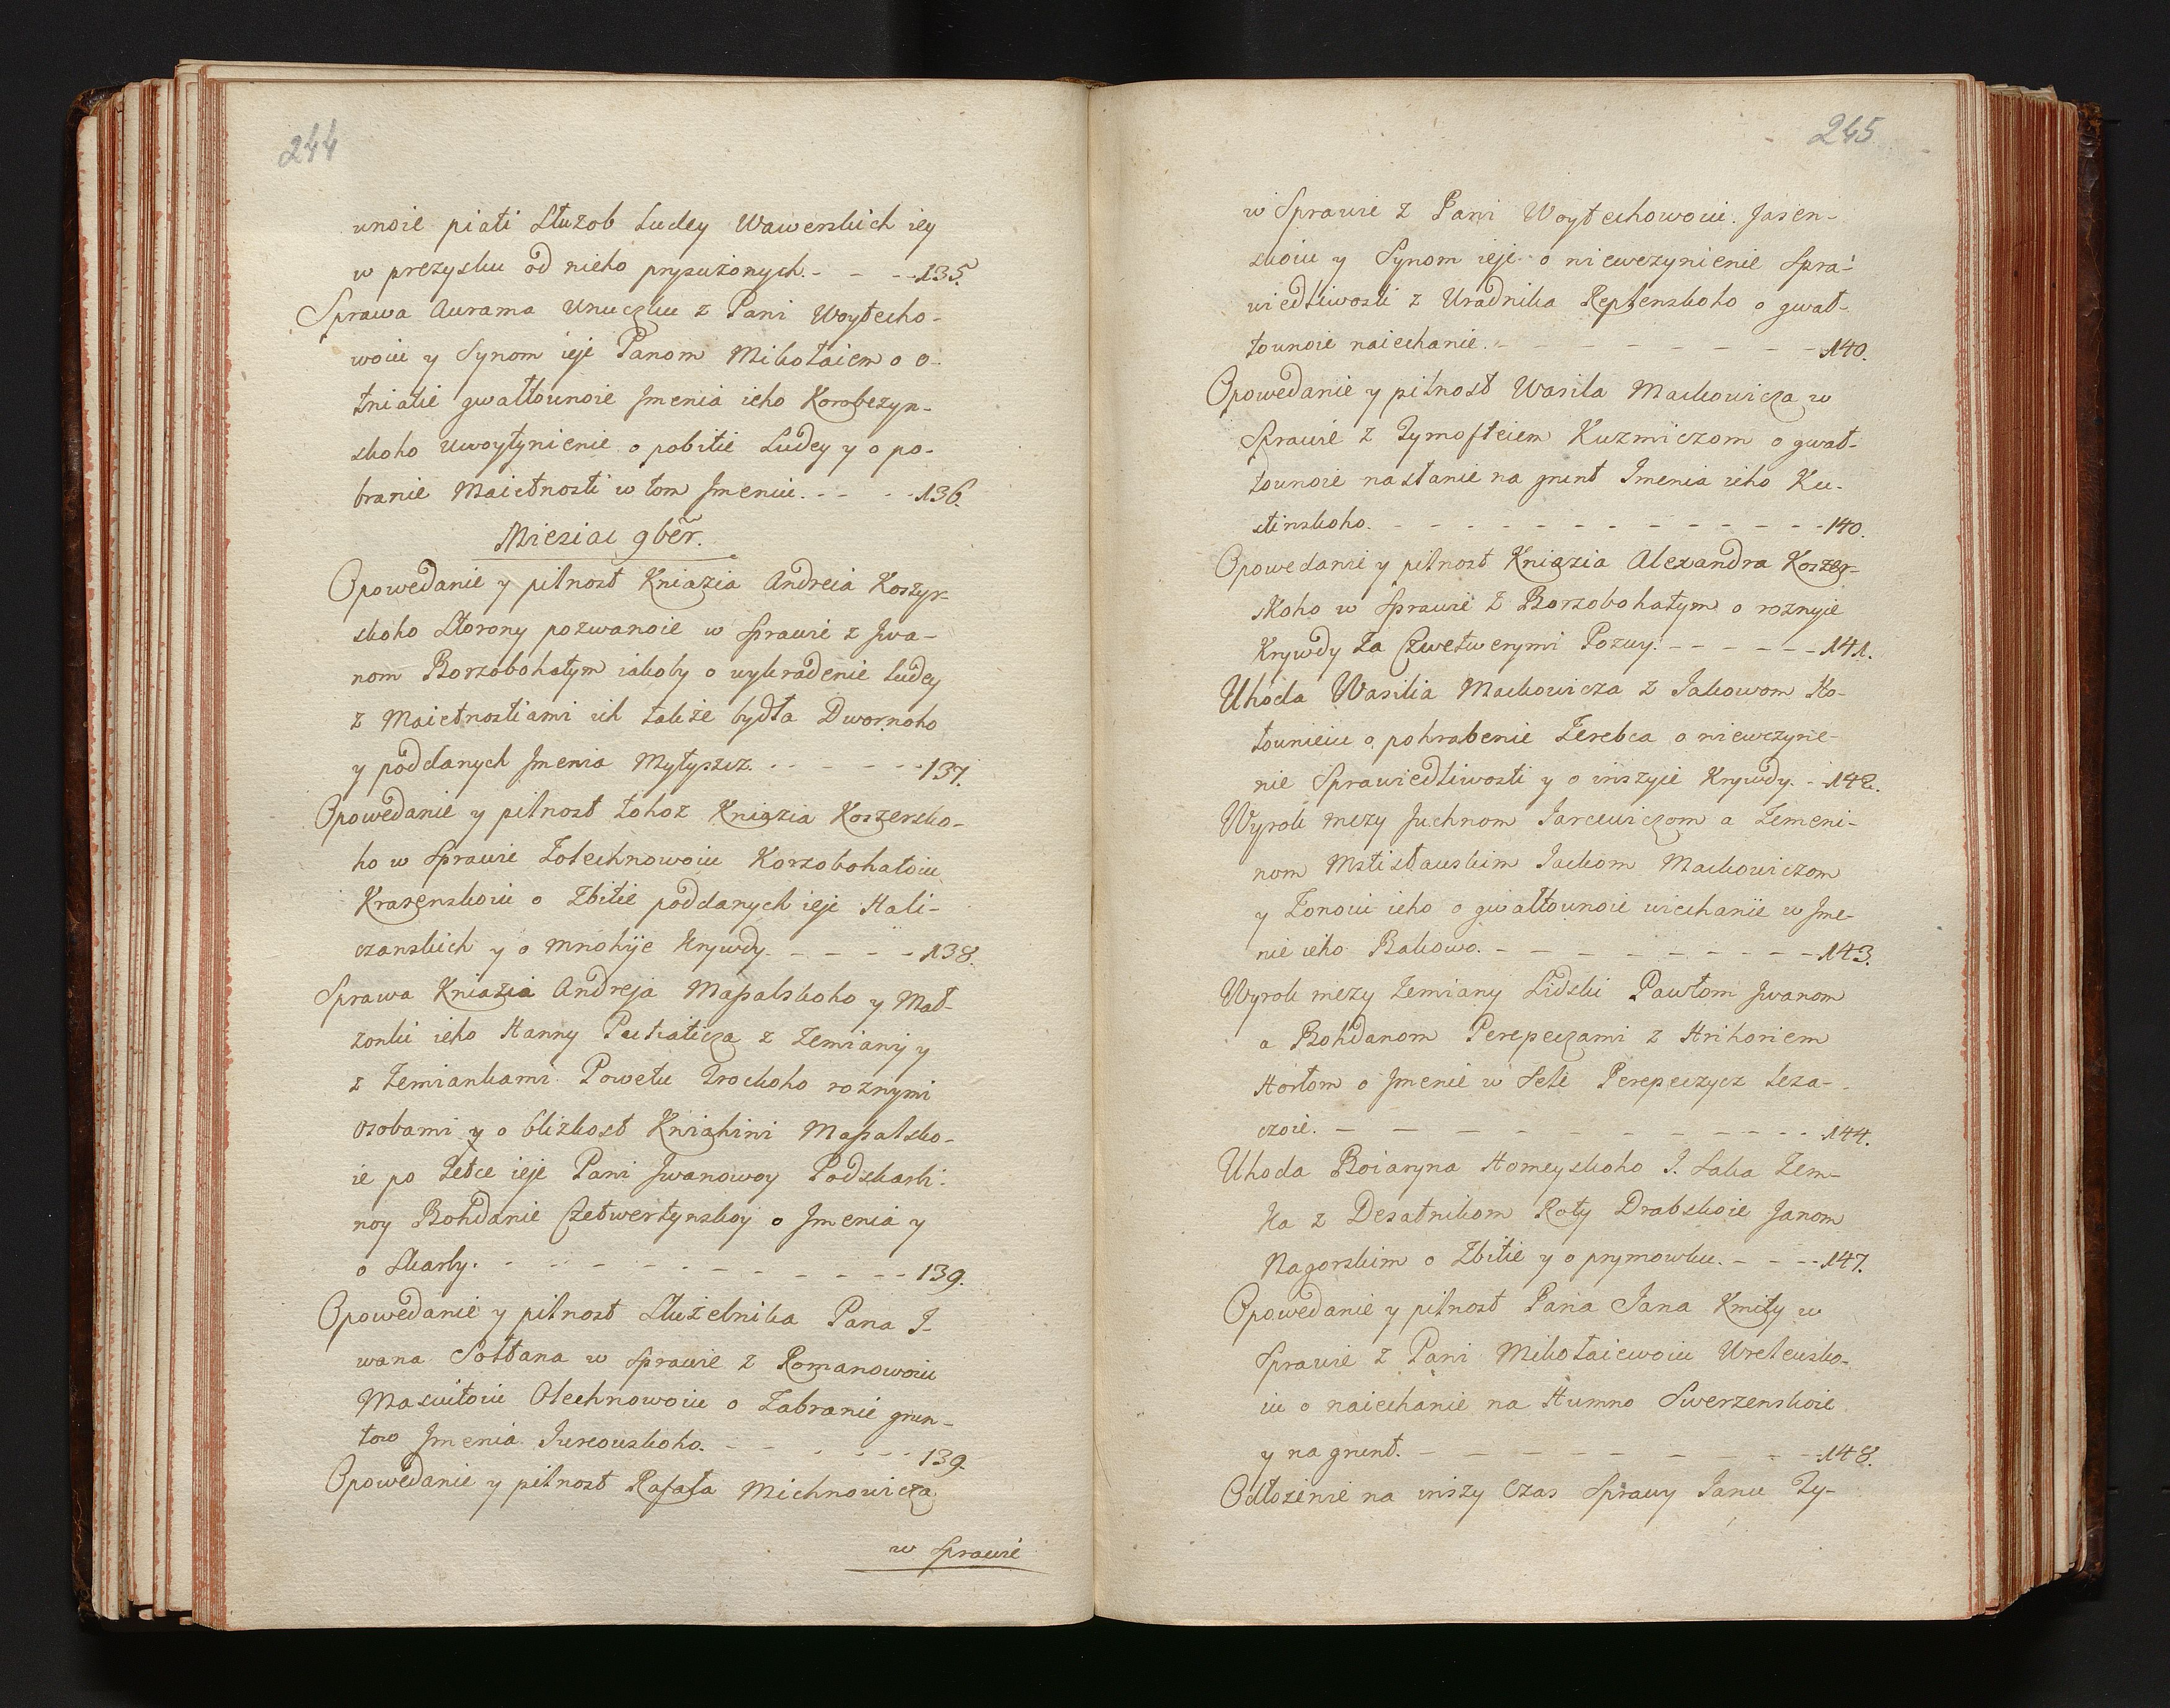 244
unoie piati Służob Ludey Wawerskich iey
w prezysku od nieho prysużonych. - - - 135.
Sprawa Aurama Unuczku z Pani Woytecho-
woiu y Synom ieje Panom Mikołaiem o o-
tniatie gwałtounoie Jmenia ieho Korobczyn-
skoho uwoytynienie o pobitie Ludey y o po-
branie Maietnosti w tom Jmeniu. - - - 136.
Miesiac 9ber.
Opowedanie y pilnost Kniazia Andreia Koszyr-
skoho Storony pozwanoie w Sprawie z Jwa-
nom Borzobohatym iakoby o wykradenie ludey
z Maietnostiami ich także bydła Dwornoho
y poddanych Jmenia Mytyszcz. - - - - - 137.
Opowedanie y pilnost tohoż Kniazia Koszersko-
ho w Sprawie Zolechnowoiu Korzobohatoiu
Krasenskoiu o Zbitie poddanych ieje Hali-
czanskich y o mnohije Krywdy. - - - - 138.
Sprawa Kniazia Andreja Massalskoho y Mał-
zonki ieho Hanny Putiaticza z Zemiany y
z Zemiankami Powetu Trockoho roznymi
osobami y o blizkost Kniahini Massalsko-
ie po Tetce ieje Pani Jwanowoy Podskarbi-
noy Bohdanie Czetwertynskoy o Jmenia y
o Skarby. - - - - - - - - - - 139.
Opowedanie y pilnost Służebnika Pana I-
wana Sołtana w Sprawie z Romanowoiu
Maswitoiu Olechnowoiu o Zabranie grun-
tow Jmenia Jurcouskoho. - - - - - - 139.
Opowedanie y pilnost Rafała Michnowicza
w Sprawie
245
w Sprawie z Pani Woytechowoiu Jasen-
skoiu y Synom ieje o niewczynienie Spra-
wiedliwosti z Uradnika Replenskoho o gwał-
tounoie naiechanie. - - - - - - - - 140.
Opowedanie y pilnost Wasila Mackowicza w
Sprawie z Tymofteiem Kuzmiczom o gwał-
tounoie nastanie na grunt Imenia ieho Ku-
stinskoho. - - - - - - - - - - - 140.
Opowedanie y pilnost Kniazia Alexandra Koszer-
skoho w Sprawie z Borzobohatym o roznyie
Krywdy za Czwetwerymi Pozwy. - - - - - - 141.
Uhoda Wasilia Mackowicza z Jakowom Ko-
touniciu o pohrabenie Zerebca o niewczyne-
nie Sprawiedliwosti y o inszyie Krywdy. - - 142.
Wyrok mezy Juchnom Jarcewiczom a Zemeni-
nom Mstisłauskim Jackom Mackowiczom
y Zonoiu ieho o gwałtounoie wiechanie w Jme-
nie ieho Bakowo. - - - - - - - - - 143.
Wyrok mezy Zemiany Lidski Pawłom Jwanom
a Bohdanom Perepeczami z Hrihoriem
Hortom o Jmenie w Seli Perepeczycz leża-
czoie. - - - - - - - - - - 144.
Uhoda Boiaryna Homeyskoho J. Saka Zem-
ka z Desatnikom Roty Drabskoie Janom
Nagorskim o Zbitie y o prymowku. - - - - 147.
Opowedanie y pilnost Pana Jana Kmity w
Sprawie z Pani Mikołaiewoiu Wretewsko-
iu o naiechanie na Humno Swerzenskoie
y na grunt. - - - - - - - - - 148.
Odłożenie na inszy Czas Sprawy Janu Ty-